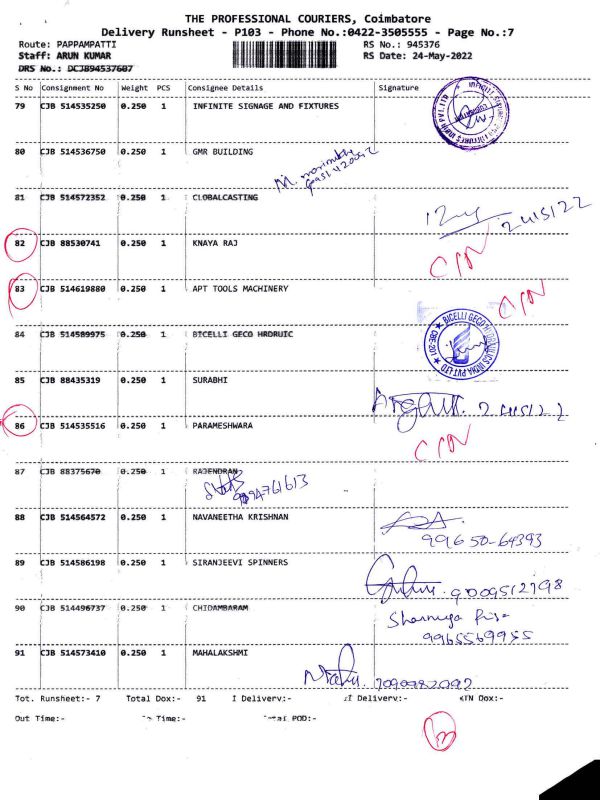 THE PROFESSIONAL COURIERS, Coimbatore
Delivery Runsheet - P103 - Phone No.:0422-3505555 - Page No.:7
Route: PAPPAMPATTI RS No.: 945376
Staff: ARUN KUMAR RS Date: 24-May-2022
DRS No.: DCJB94537687
S No Consignment No Weight PCS Consignee Details Signature
79 CJB 514535250 0.250 1 INFINITE SIGNAGE AND FIXTURES
80 CJB 514536750 0.250 1 GMR BUILDING
81 CJB 514572352 0.250 1 CLOBALCASTING
24/5/22
82 CJB 88530741 0.250 1 KNAYA RAJ
C/N
83 CJB 514619880 0.250 1 APT TOOLS MACHINERY
C/N
84 CJB 514589975 0.250 1 BICELLI GECO HRDRUIC
BICELLI GECO HYDRAULICS INDIA PVT LTD
85 CJB 88435319 0.250 1 SURABHI
24/5/22
86 CJB 514535516 0.250 1 PARAMESHWARA
C/N
87 CJB 88375670 0.250 1 RAJENDRAN
88 CJB 514564572 0.250 1 NAVANEETHA KRISHNAN
99650-64393
89 CJB 514586198 0.250 1 SIRANJEEVI SPINNERS
90 CJB 514496737 0.250 1 CHIDAMBARAM
9965569955
91 CJB 514573410 0.250 1 MAHALAKSHMI
Tot. Runsheet:- 7 Total Dox:- 91 I Delivery:- II Delivery:- KTN Dox:-
Out Time:- Time:- Total POD:-